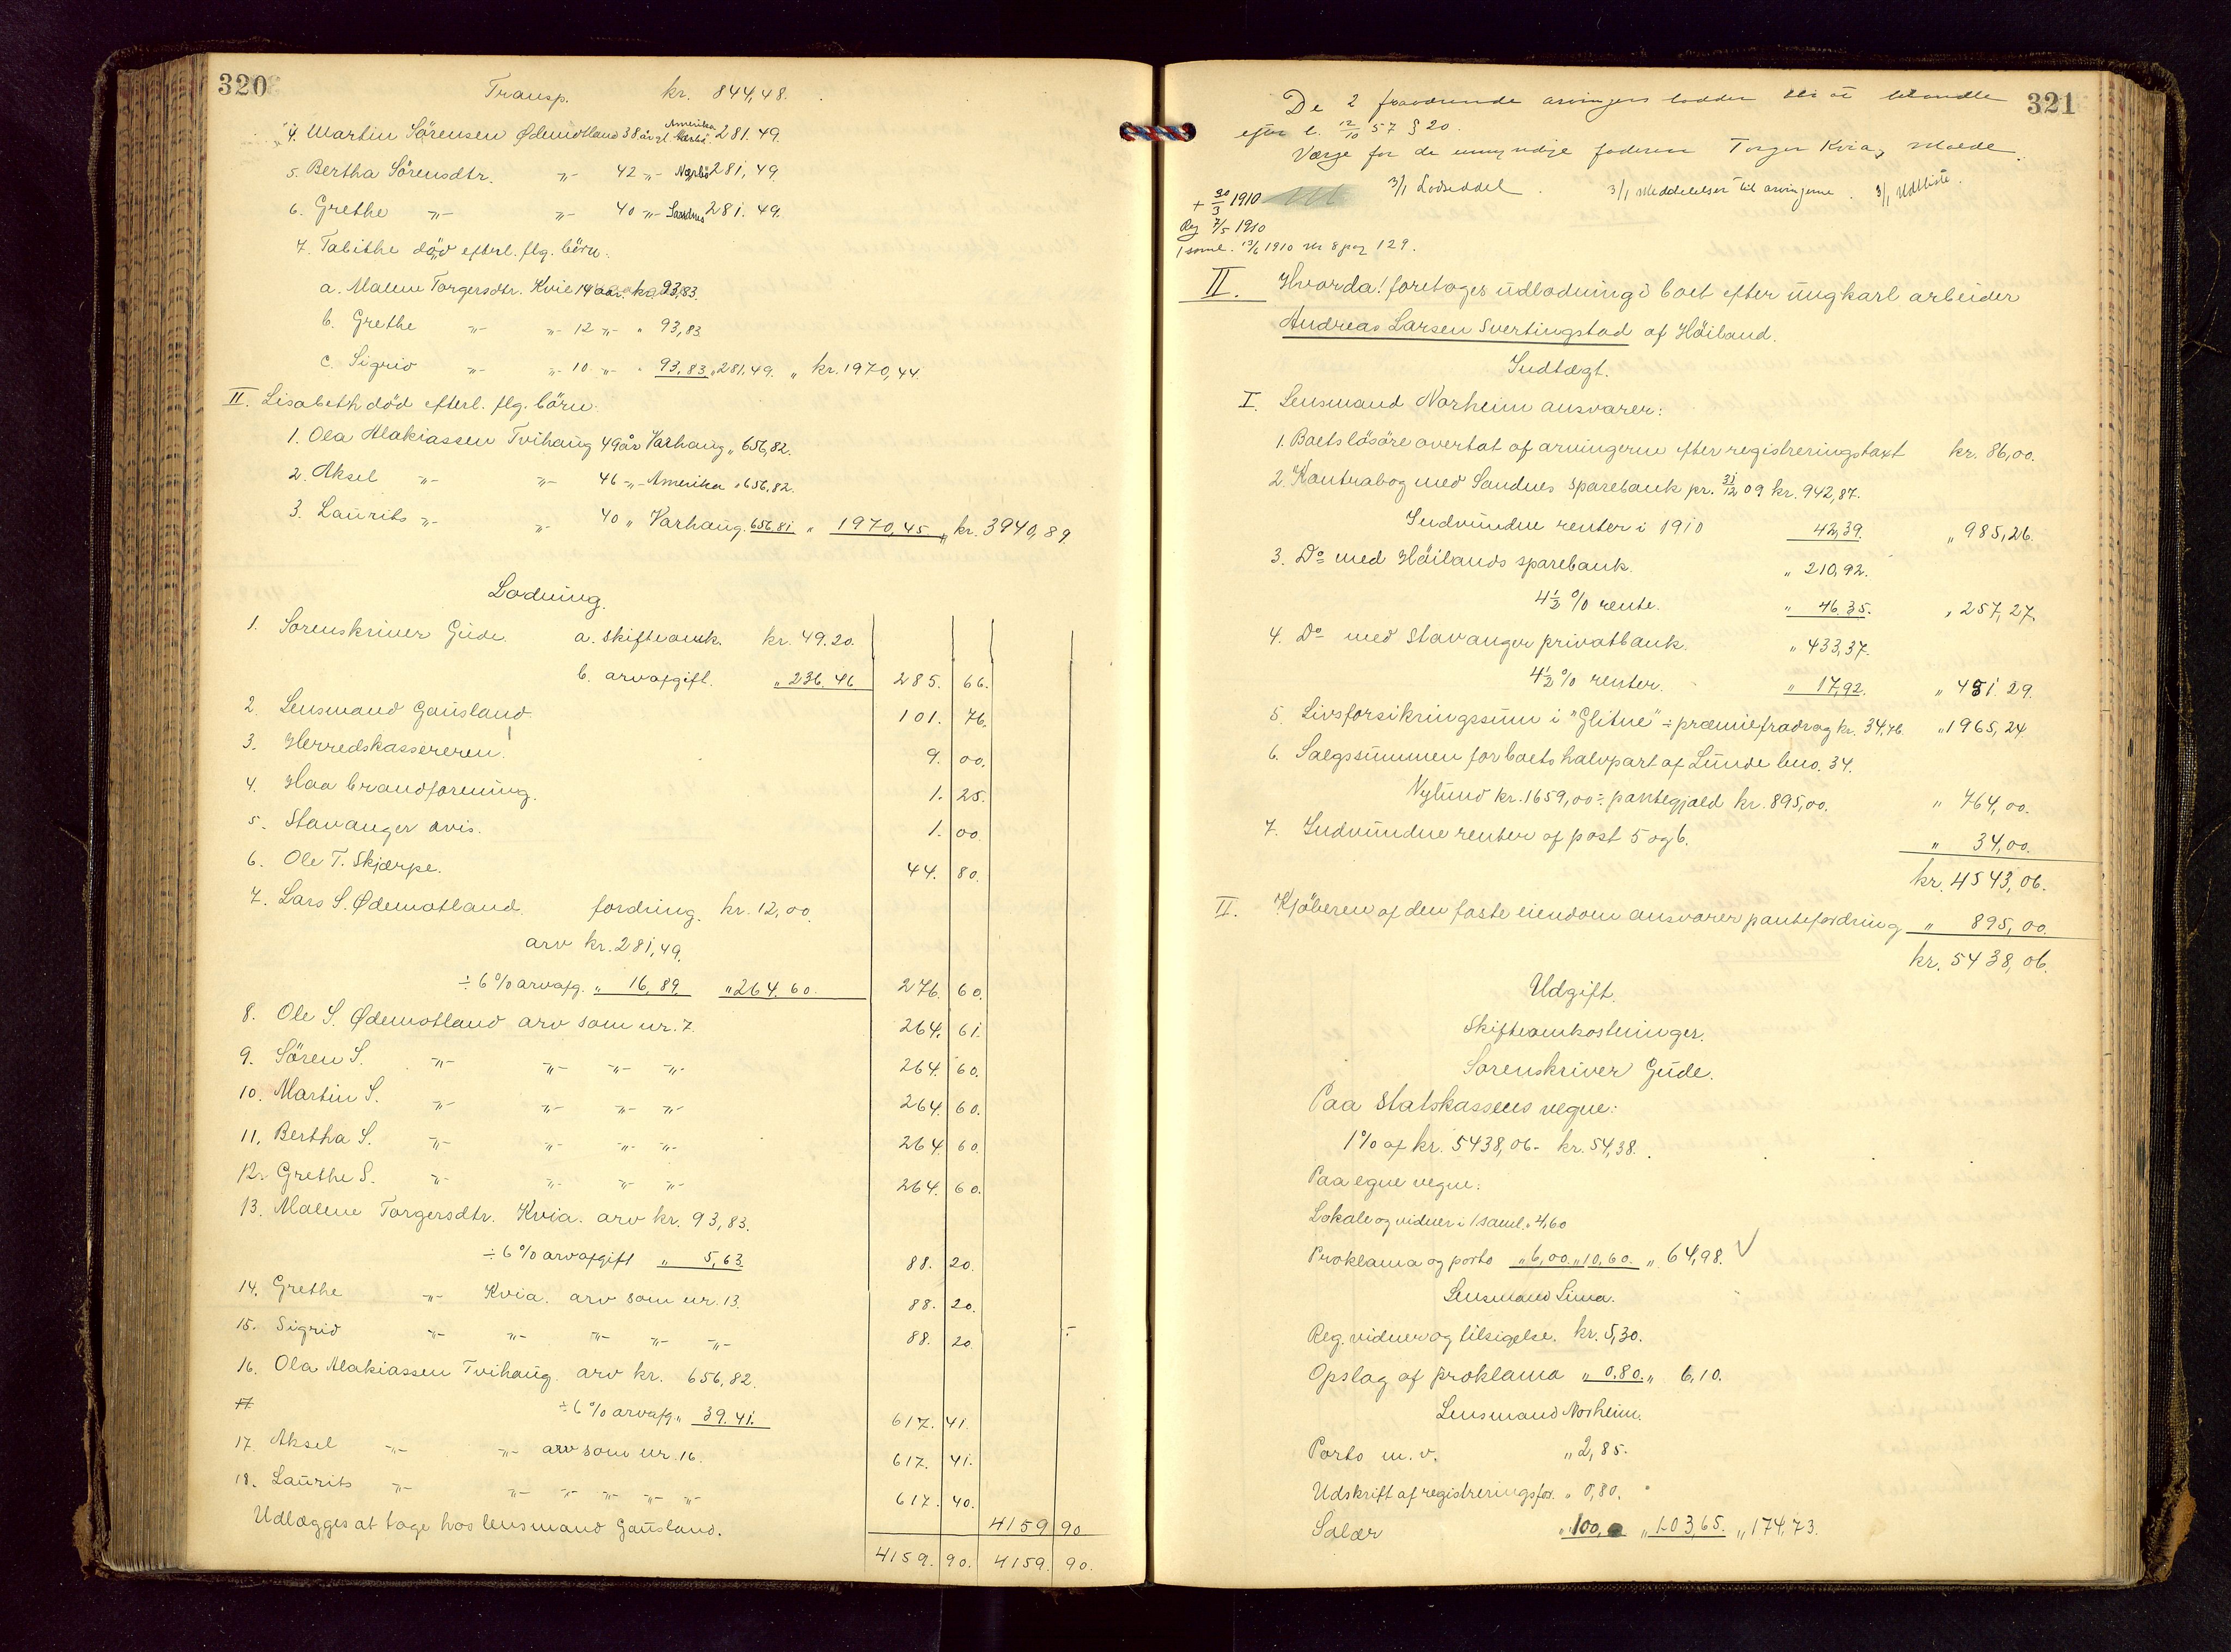 320
Transp. kr. 844,48.
4. Martin Sörensen Ødemotland 38 år gl. Amerika 281.49.
5. Bertha Sörensdtr. -"- 42 -"- Nærbö 281,49.
6. Grethe -"- -"- 40 -"- Sandnes 281.49.
7. Tabithe död efterl. flg. börn:
a. Malene Torgersdtr. Kvie 14 aar. kr. 93,83.
b. Grethe -"- -"- 12 -"- " 93,83
c. Sigrid -"- -"- 10 -"- " 93,83 " 281,49. " kr. 1970,44.
II. Lisabeth död efterl. flg. börn:
1. Ola Malakiassen Tvihaug 49 år Varhaug " 656,82.
2. Aksel -"- -"- 46 -"- Amerika " 656,82.
3. Laurits -"- -"- 40 " Varhaug. 656,81 " 1970,45 " kr. 3940,89.
Lodning.
1. Sorenskriver Gude. a. skifteomk. kr. 49.20.
b. arvafgift. " 236.46 285. 66.
2. Lensmand Gausland. 101. 76.
3. Herredskassereren. 9. 00.
4. Haa brandforening. 1. 25.
5. Stavanger avis. 1. 00.
6. Ole T. Skjærpe. 44. 80.
7. Lars S. Ødemotland. fordring. kr. 12,00.
arv kr. 281,49.
÷ 6% arvafg. " 16,89. " 264.60. 276. 60.
8. Ole S. Ødemotland arv som nr. 7. 264. 61.
9. Sören S. -"- -"- -"- -"- 264. 60.
10. Martin S. -"- -"- -"- -"- 264. 60.
11. Bertha S. -"- -"- -"- -"- 264. 60.
12. Grethe S. -"- -"- -"- -"- 264. 60.
13. Malene Torgersdtr. Kvia. arv kr. 93,83.
÷ 6% arvafgift " 5,63. 88. 20.
14. Grethe -"- Kvia. arv som nr. 13. 88. 20.
15. Sigrid -"- -"- -"- -"- -"- 88. 20
16. Ola Malakiassen Tvihaug. arv kr. 656,82.
17 ÷ 6% arvafg. " 39.41. 617. 41.
17. Aksel -"- -"- arv som nr. 16. 617. 41.
18. Laurits -"- -"- -"- -"- -"- -"- 617. 40.
Udlægges at tage hos lensmand Gausland. 4159 90
4159. 90. 4159. 90.
321
De 2 fraværende arvingers lodder blir at behandle
efter l. 12/10 57 § 20.
Værge for de umyndige faderen Torger Kvia, Molde.
3/1 Lodseddel. 3/1 Meddelelser til arvingerne. 3/1 Udlliste.
+ 30/3 1910
Reg 7/5 1910
1 saml. 13/6 1910 nr 8 pag 129.
II. Hvorda! foretoges udlodning i boet efter ungkarl arbeider
Andreas Larsen Svertingstad af Höiland.
Indtægt.
I. Lensmand Norheim ansvarer:
1. Boets lösöre overtat af arvingerne efter registreringstaxt kr. 86,00.
2. Kontrabog med Sandnes sparebank pr. 31/12 09 kr. 942,87.
Indvundne renter i 1910 42,39. " 985,26.
3. Do med Höilands sparebank. " 210,92.
4½ % rente. " 46.35. " 257,27.
4. Do med Stavanger privatbank. " 433,37.
4½ % renter. " 17,92. " 451.29.
5. Livsforsikringssum i "Glitne" ÷ præmiefradrag kr. 34,76. " 1965,24
6. Salgssummen for boets halvpart af Lunde bno. 34.
Nylund kr. 1659,00 ÷ pantegjæld kr. 895,00. " 764,00.
7. Indvundne renter af post 5 og 6. " 34,00.
kr. 4543,06.
II. Kjöberen af den faste eiendom ansvarer pantefordring " 895,00.
kr. 5438,06.
Udgift.
Skifteomkostninger.
Sorenskriver Gude.
Paa Statskassens vegne:
1% af kr. 5438,06 - kr. 54,38.
Paa egne vegne:
Lokale og vidner i 1 saml. " 4,60
Proklama og porto " 6,00. " 10,60. " 64,98. √
Lensmand Lima.
Reg. vidner og tilsigelse. kr. 5,30.
Opslag af proklama " 0,80. " 6,10.
Lensmand Norheim.
Porto m. v. " 2,85.
Udskrift af registreringsfor. " 0,80.
Salær " 100, " 103,65. " 174,73.